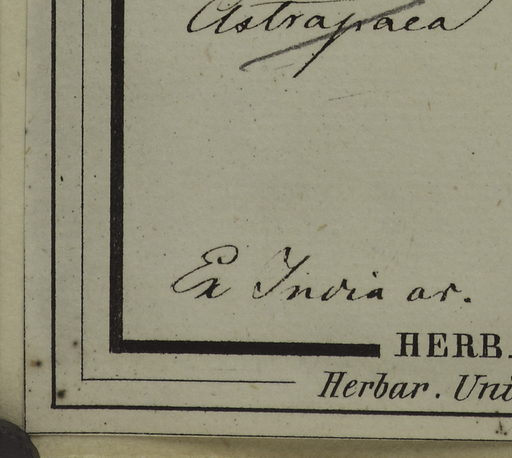 Astrapaea
Ex India or.
HERB.
Herbar. Uni